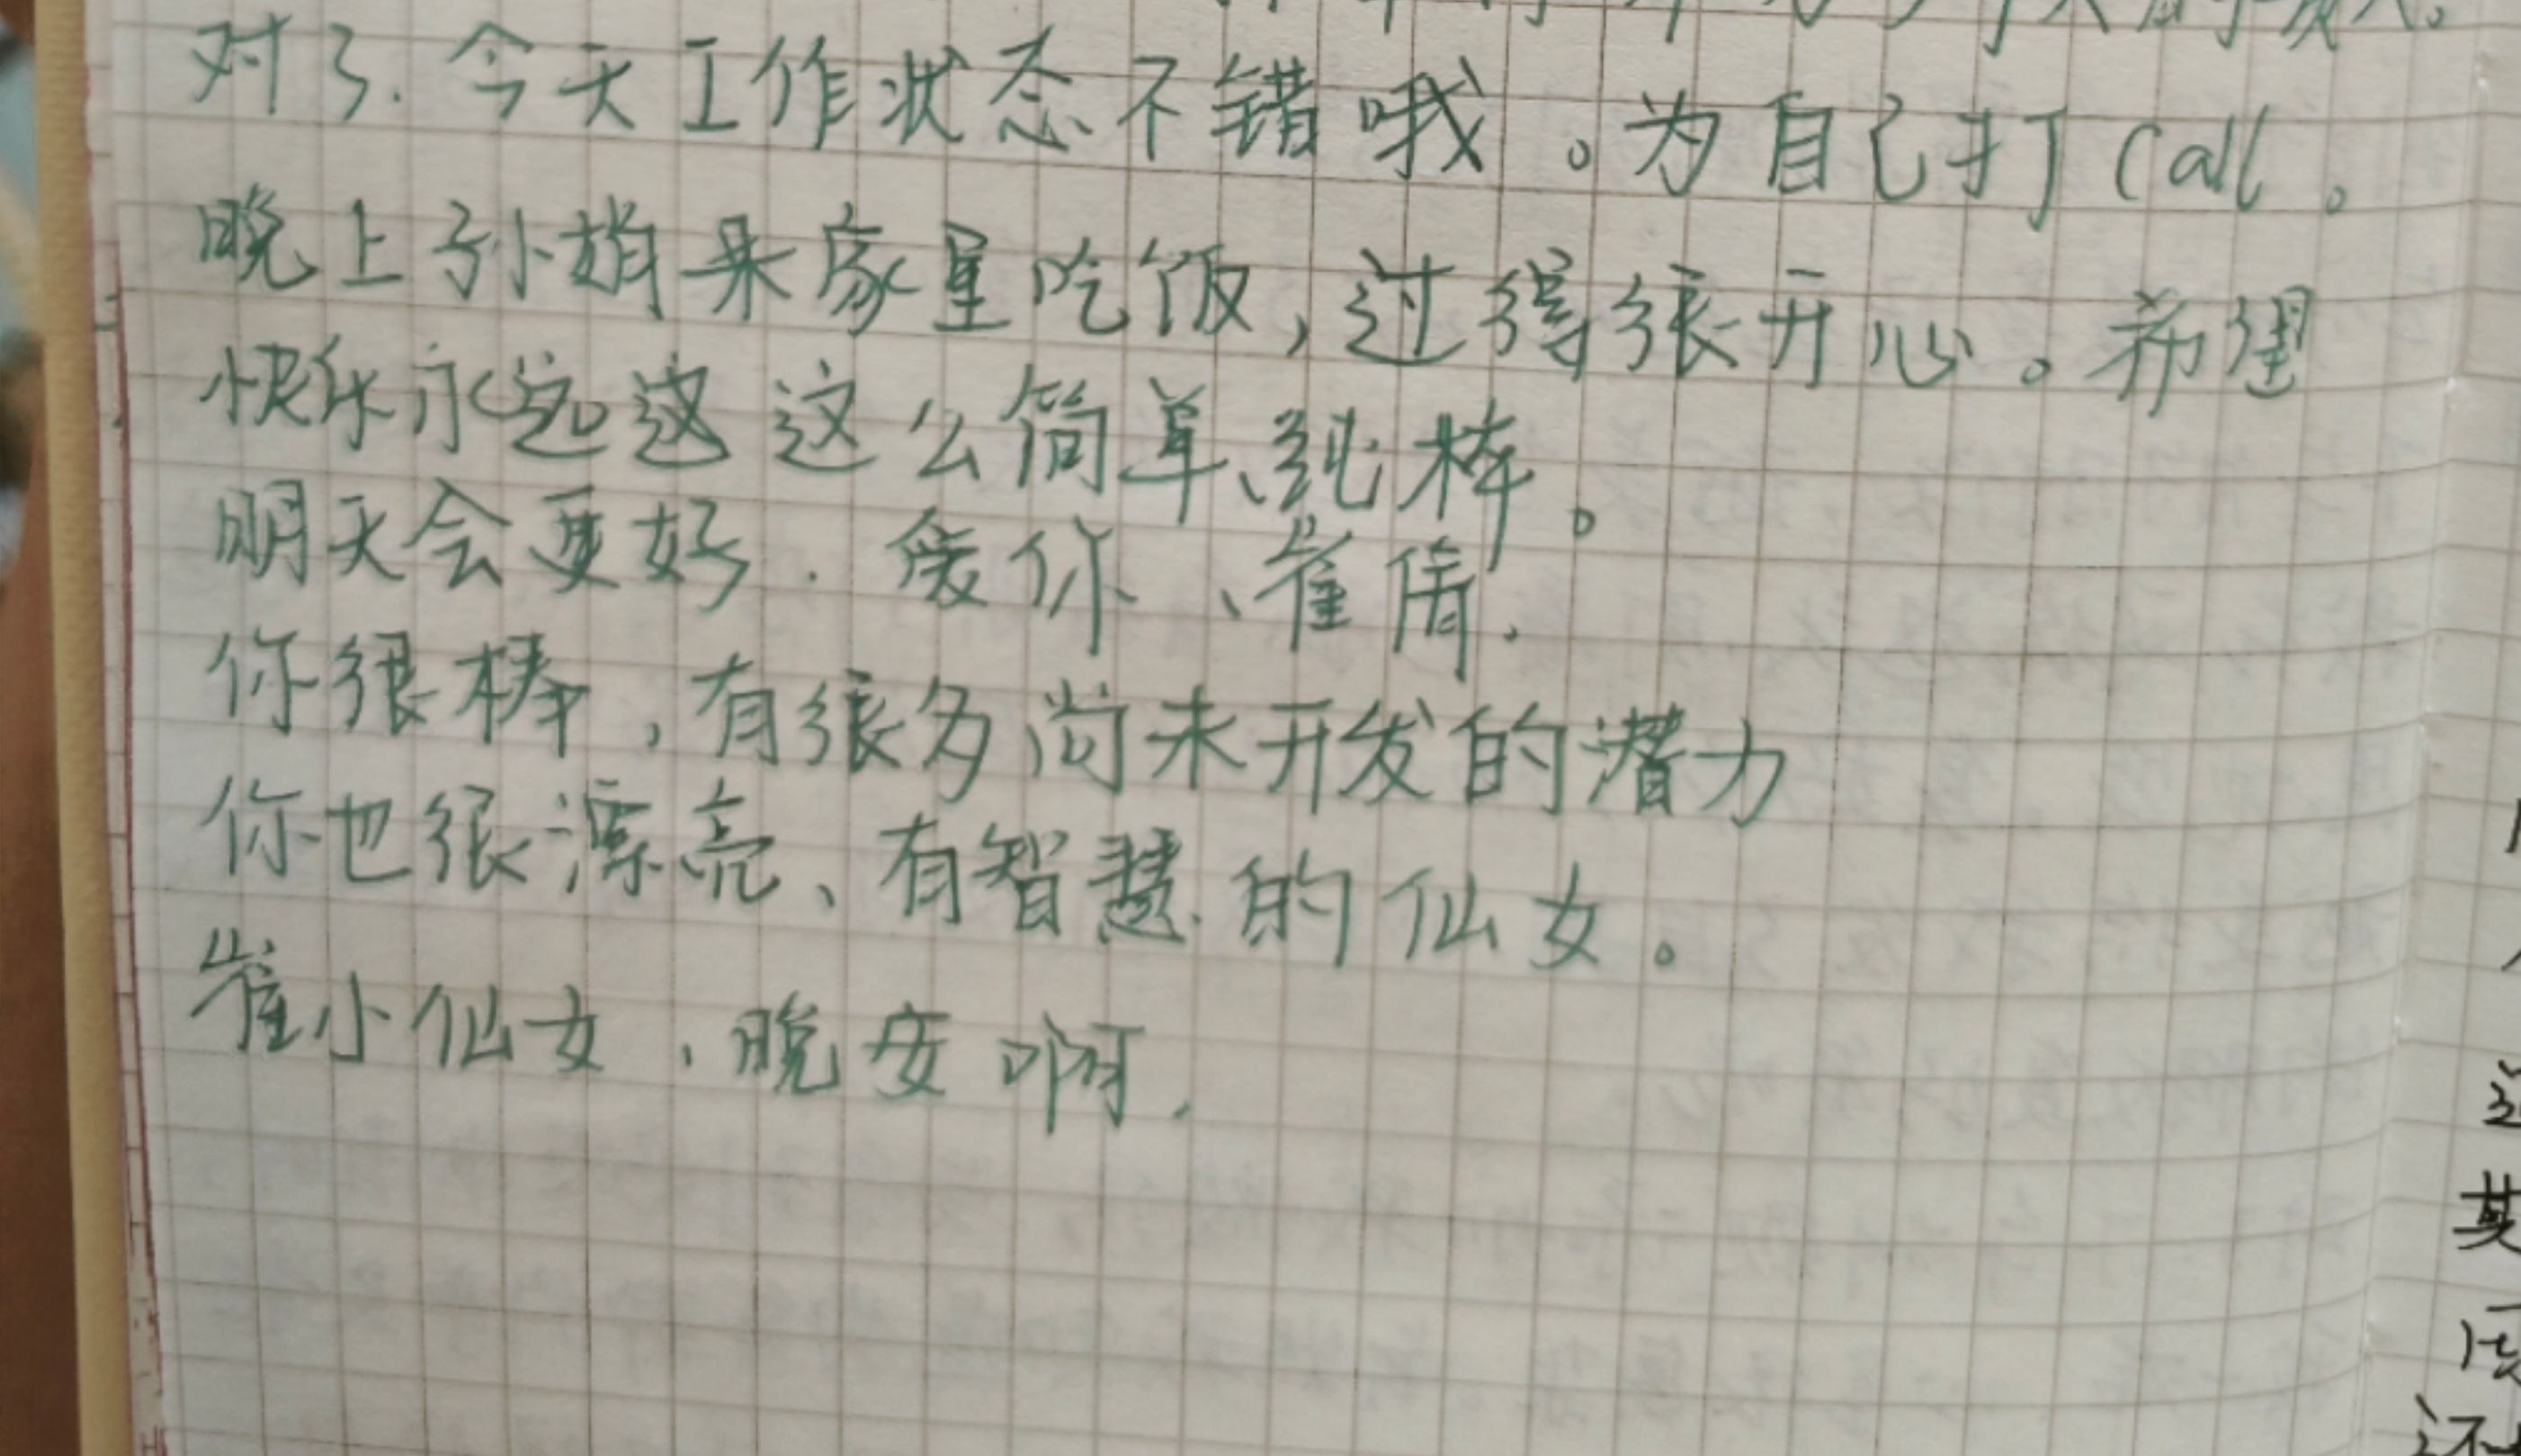 对了.今天工作状态不错哦。为自己打call。
晚上孙娟来家里吃饭,过得很开心。希望
快乐永远这这么简单、纯粹。
明天会更好.爱你、崔倩.
你很棒,有很多尚未开发的潜力
你也很漂亮、有智慧的仙女。
崔小仙女、晚安啊.